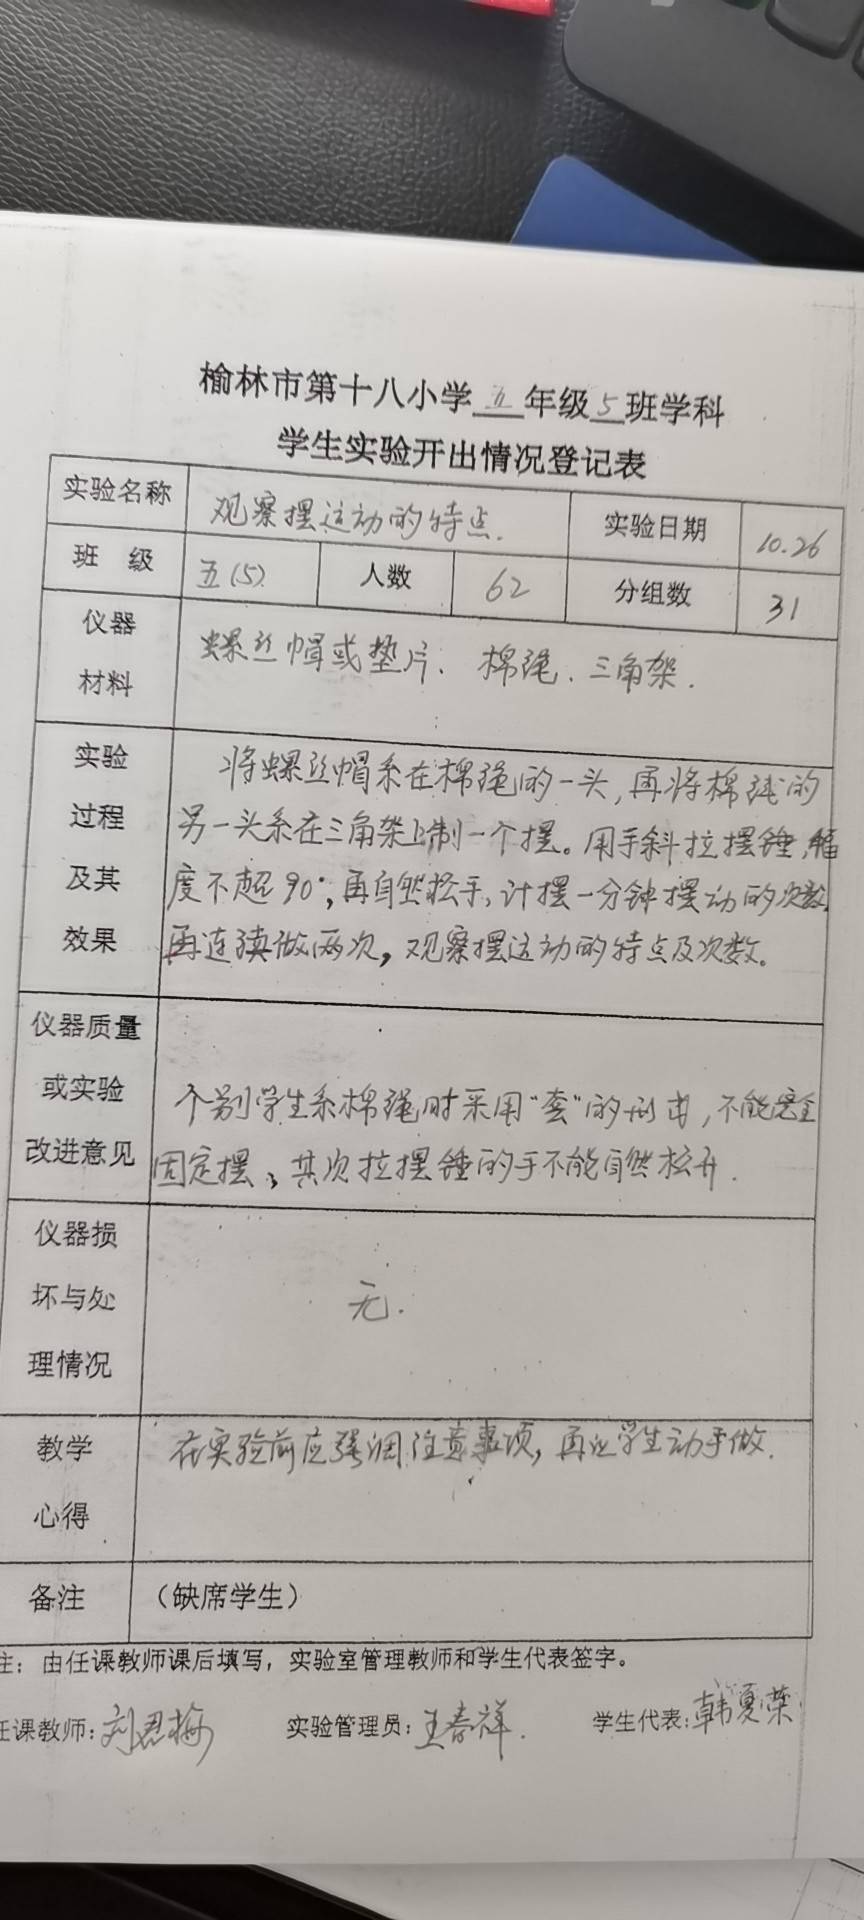 榆林市第十八小学 五 年级 5 班学科
学生实验开出情况登记表
实验名称 观察摆运动的特点. 实验日期 10.26
班 级 五(5) 人数 62 分组数 31
仪器
材料
螺丝帽或垫片、棉绳、三角架.
实验
过程
及其
效果
将螺丝帽系在棉绳的一头,再将棉线的
另一头系在三角架上制一个摆。用手斜拉摆锤,幅
度不超90°,再自然松手,计摆一分钟摆动的次数,
再连续做两次,观察摆运动的特点及次数。
仪器质量
或实验
改进意见
个别学生系棉绳时采用“套”的形式,不能完全
固定摆、其次拉摆锤的手不能自然松开.
仪器损
坏与处
理情况
无.
教学
心得
在实验前应强调注意事项,再让学生动手做.
备注 （缺席学生）
注：由任课教师课后填写，实验室管理教师和学生代表签字。
任课教师: 刘 梅 实验管理员: 王春祥. 学生代表: 韩夏荣